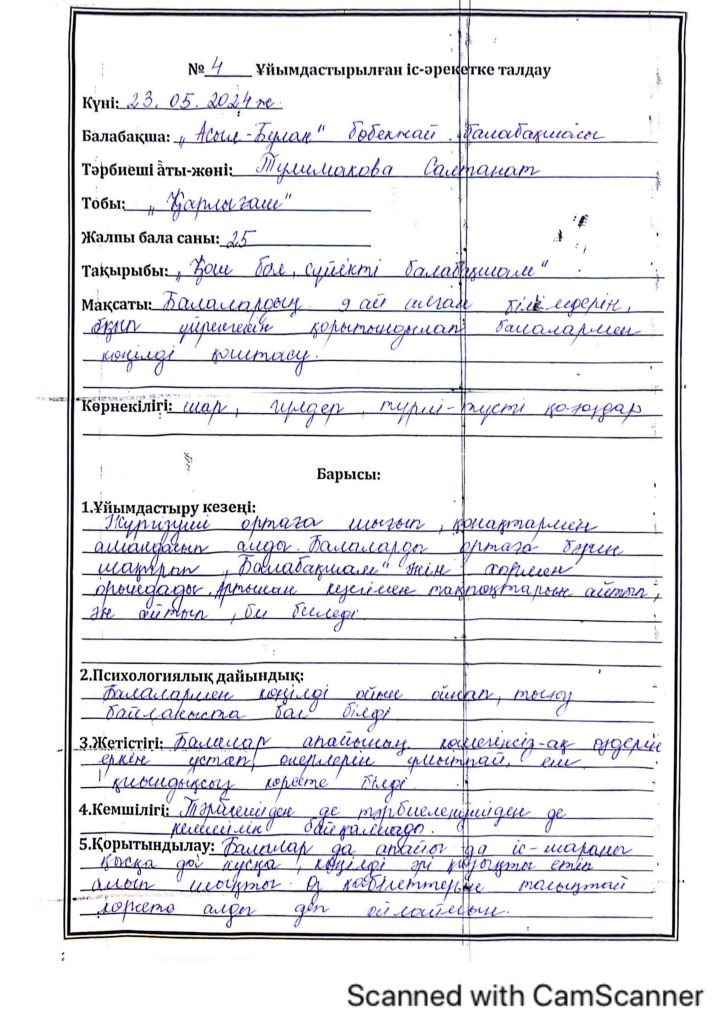 № 4 Ұйымдастырылған іс-әрекетке талдау
Күні: 23. 05. 2024 ж.
Балабақша: „Асыл-Бұлақ" бөбекжай балабақшасы
Тәрбиеші аты-жөні: Тулимакова Салтанат
Тобы: „Қарлығаш"
Жалпы бала саны: 25
Тақырыбы: „Қош бол, сүйікті балабақшам"
Мақсаты: Балалардың 9 ай алған білімдерін,
үйренгенін қорытындылап балалармен
көңілді қоштасу.
Көрнекілігі: шар, гүлдер, түрлі-түсті қағаздар
Барысы:
1.Ұйымдастыру кезеңі:
Жүргізуші ортаға шығып, қонақтармен
амандасып алды. Балаларды ортаға бимен
шақырып „Балабақшам" әнін хормен
орындады. Артынан кезегімен тақпақтарын айтып,
ән айтып, би биледі.
2.Психологиялық дайындық:
Балалармен көңілді ойын ойнап, тығыз
байланыста бол білді
3.Жетістігі: Балалар апайының көмегінсіз-ақ өздерін
еркін ұстап, өнерлерін ұмытпай, еш
қиындықсыз көрсете білді
4.Кемшілігі: Тәрбиешіден де тәрбиеленушіден де
кемшілік байқалмады.
5.Қорытындылау: Балалар да апайы да іс-шараны
қысқа да нұсқа, көңілді әрі қызықты етіп
алып шықты. Өз қабілеттерін толықтай
көрсете алды деп ойлаймын.
Scanned with CamScanner